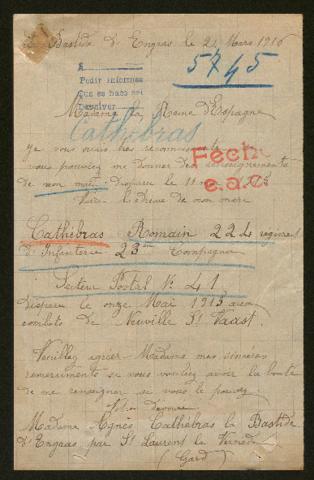 La Bastide d'Engras le 21 Mars 1916
5745
Pedir informes
Madame la Reine d'Espagne
Cathébras
Je vous serais très reconnaissante si
vous pouviez me donner des renseignements
de mon mari Disparu le 11
Fecho
e.a.c.
Voici l'adresse de mon
Cathébras Romain 224 régiment
d'Infanterie 23ème Compagnie
Secteur Postal No 41
disparu le onze Mai 1915 aux
combats de Neuville St Vaast.
Veuillez agréer Madame mes sincères
remerciements si vous vouliez avoir la bonté
de me renseigner si vous le pouvez
Madame Agnès Cathébras La Bastide
d'Engras par St Laurent la Vernède
(Gard)